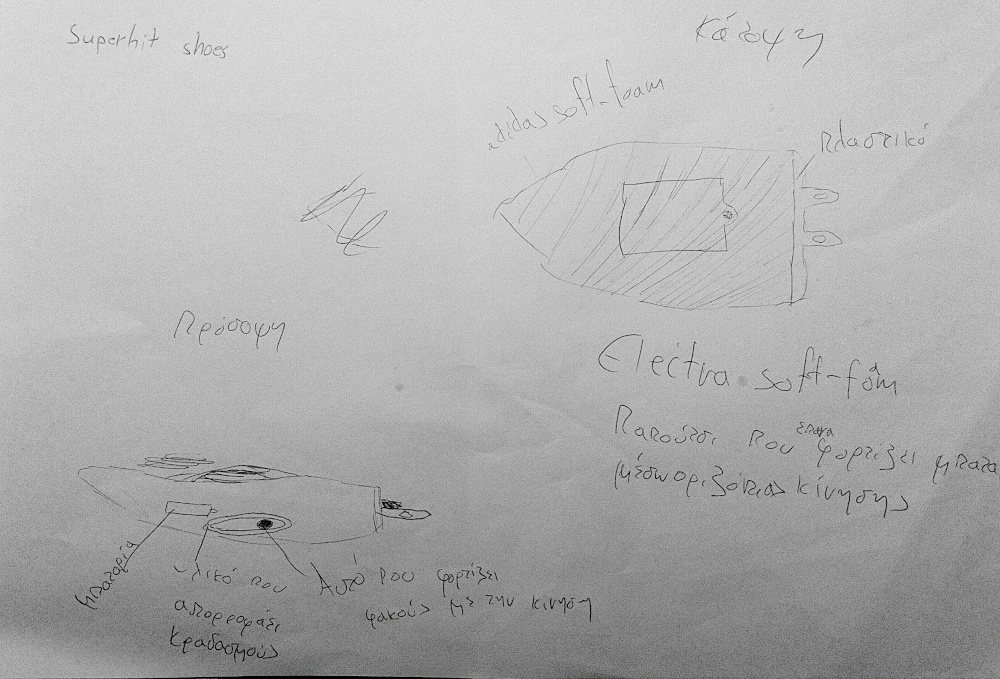 Superhit shoes
Κάτοψη
adidas soft-foam
πλαστικό
Πρόσοψη
Electra soft-foam
Παπούτσι που επανα φορτίζει μπατα
μέσω οριζόντιας κίνησης
Μπαταρία
υλικό που
απορροφάει
κραδασμούς
Αυτό που φορτίζει
φακούς με την κίνηση